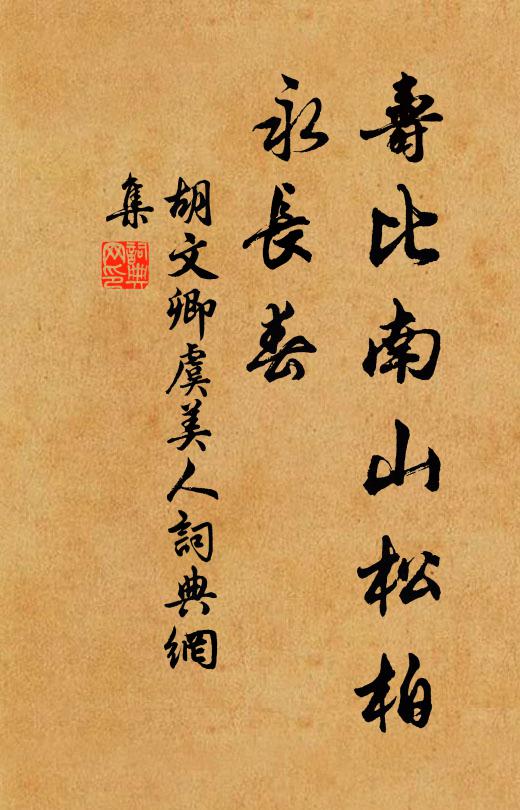 壽比南山松柏
永長春
胡文卿虞美人詞典網
集
詞典網印